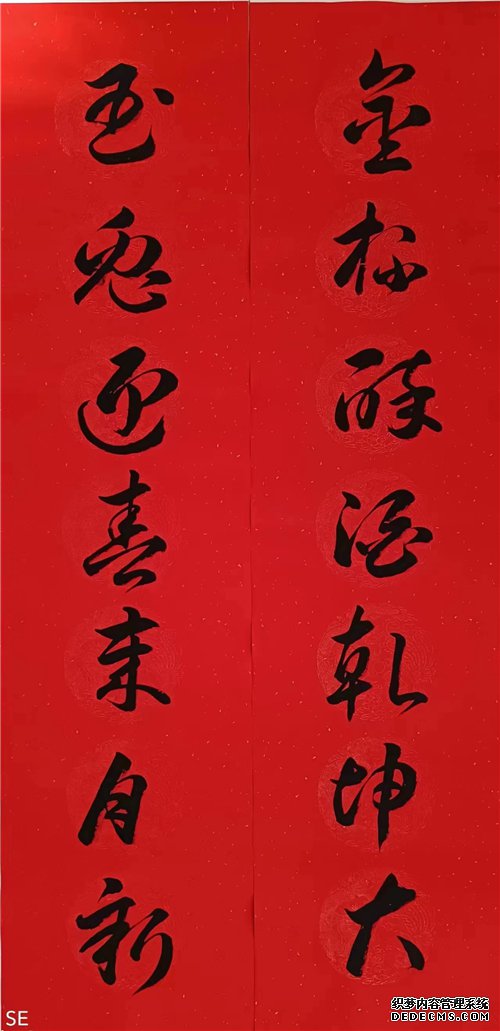 金杯醉酒乾坤大
玉兔迎春歲月新
SE
织梦内容管理系统
DEDECMS.COM